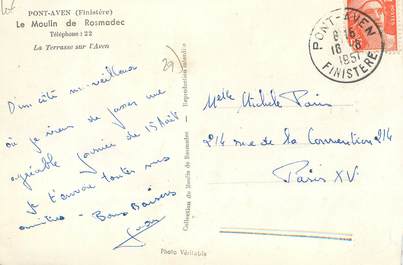 PONT-AVEN (Finistère)
Le Moulin de Rosmadec
Téléphone : 22
La Terrasse sur l'Aven
29)
D'un côté merveilleux
où je viens de passer une
agréable journée de 15 Août
je t'envoie toutes mes
amitiés - Bons Baisers
Collection du Moulin de Rosmadec - Reproduction interdite
Photo Véritable
PONT-AVEN
16-8
1951
FINISTÈRE
Melle Michèle Paris
214 rue de la Convention 214
Paris XV